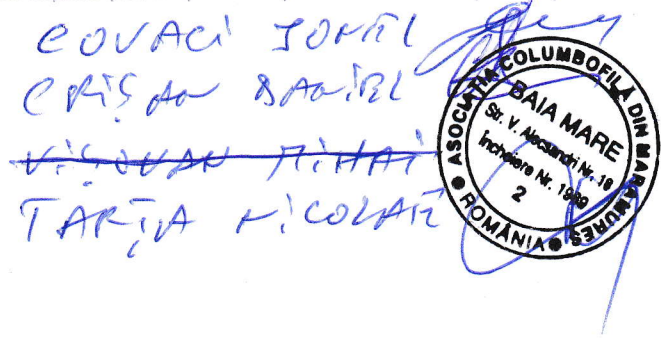 COVACI IONEL
CRIȘAN DANIEL
VIȘOVAN MIHAI
TARȚA NICOLAE
ASOCIAȚIA COLUMBOFILĂ DIN MARAMUREȘ
BAIA MARE
Str. V. Alecsandri Nr. 18
Încheiere Nr. 1989
2
ROMÂNIA